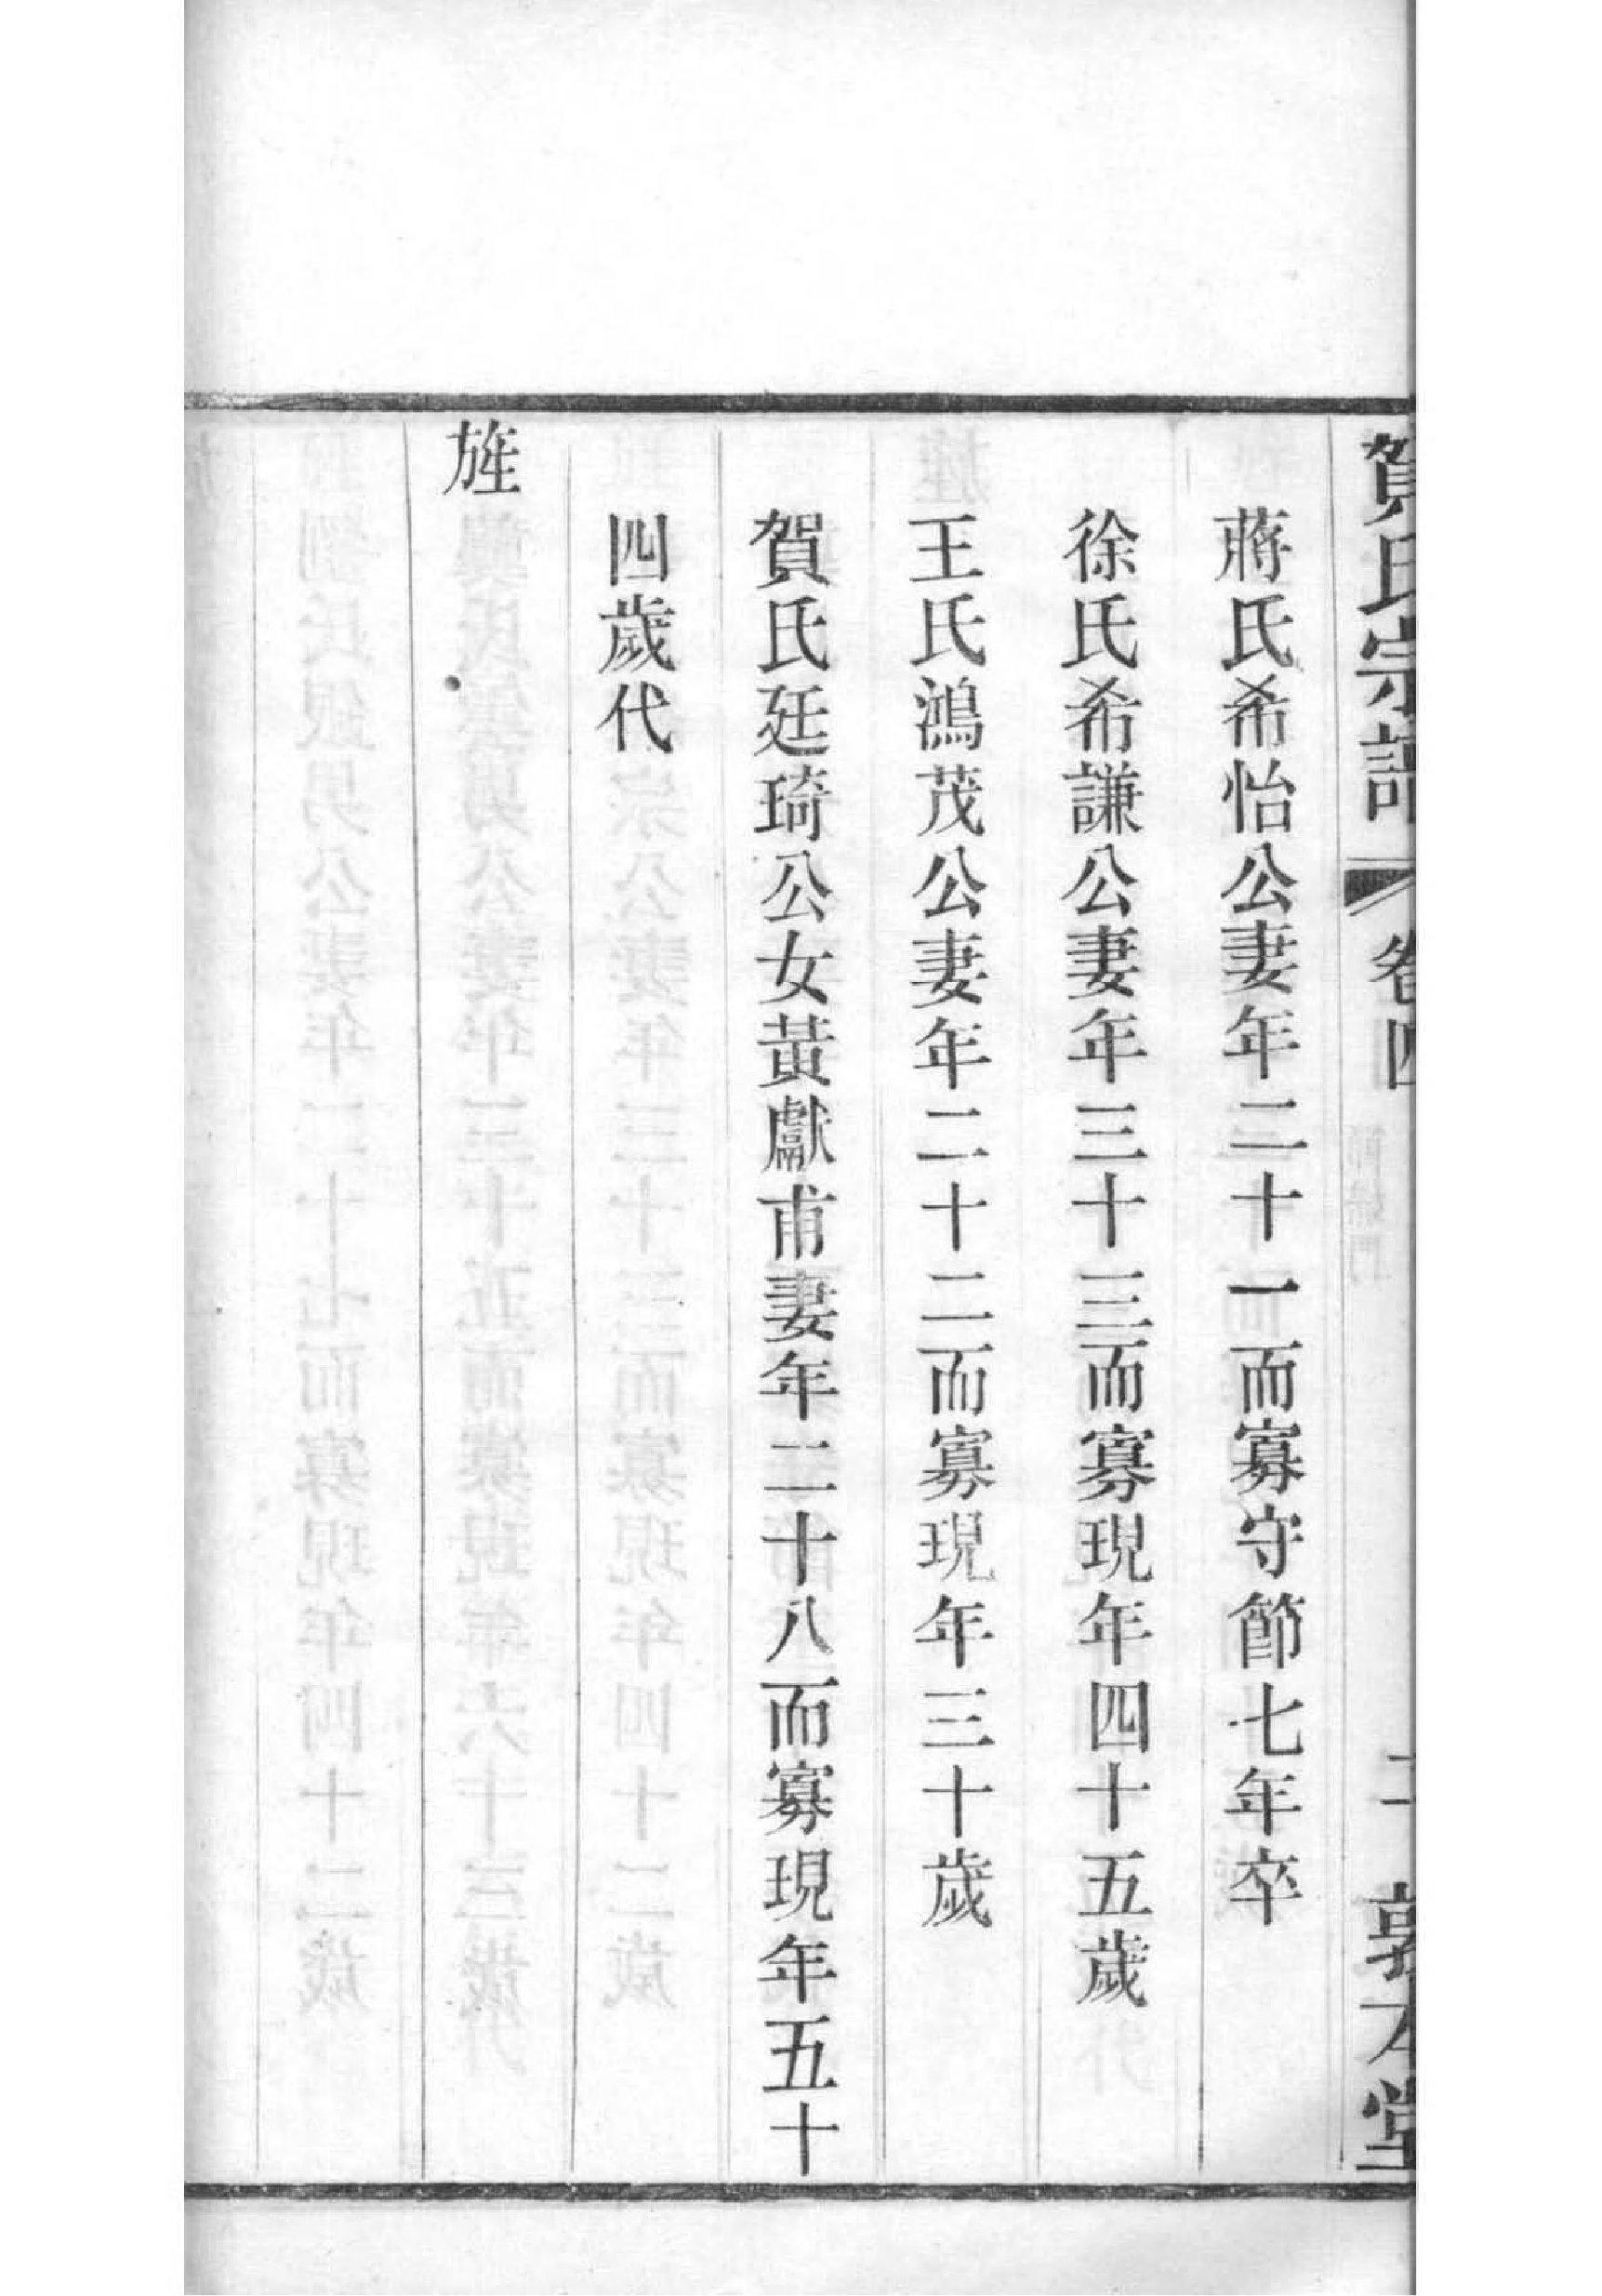 賀氏宗譜 卷四 敦本堂
蔣氏希怡公妻年二十一而寡守節七年卒
徐氏希謙公妻年三十三而寡現年四十五歲
王氏鴻茂公妻年二十二而寡現年三十歲
賀氏廷琦公女黃獻甫妻年二十八而寡現年五十
四歲代
旌